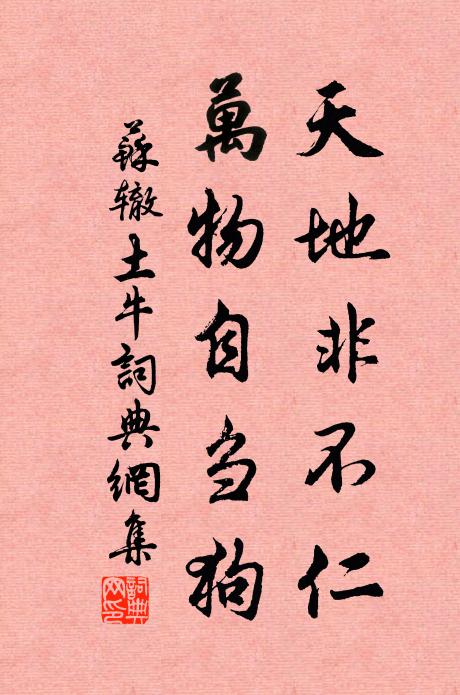 天地非不仁
萬物自刍狗
蘇辙土牛詞典網集
詞典
网印